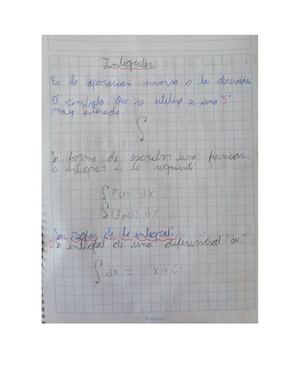 Integrales
Es la operacion inversa a la derivada
El simbolo que se utiliza es una "S"
muy estirada
∫
La forma de escribir una funcion
a integrar es la siguiente:
∫ f(x) dx
dx
Las reglas de la integral:
La integral de una diferencial "dx"
∫ dx = x + C